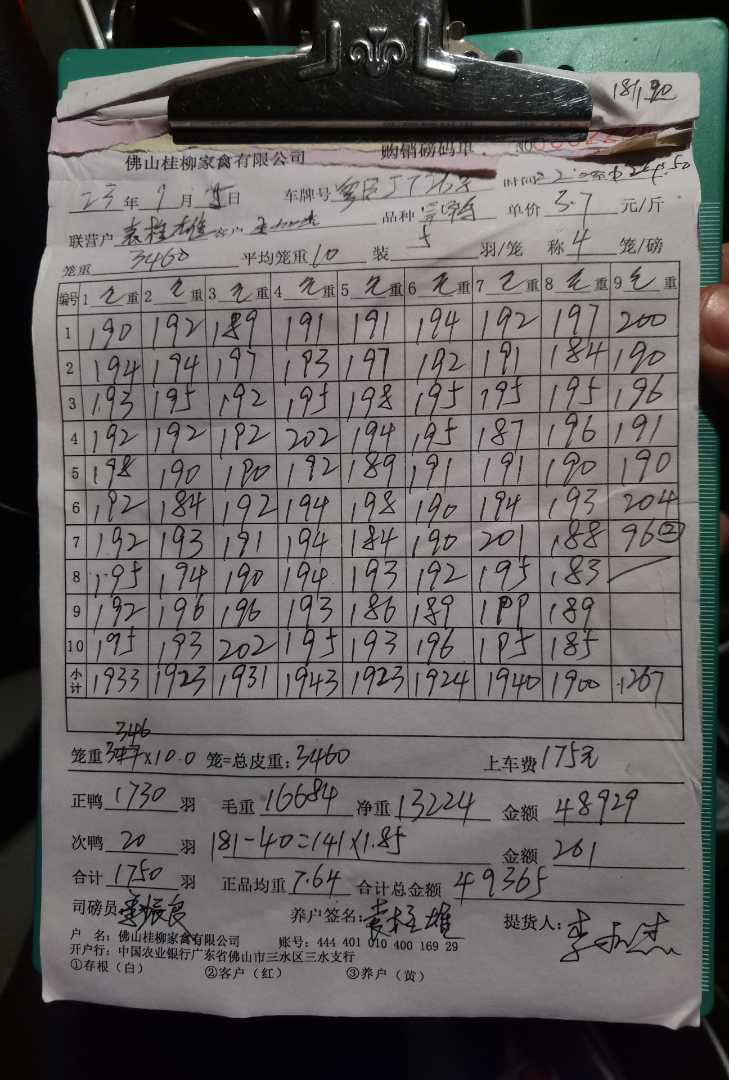 181 20
佛山桂柳家禽有限公司 购销磅码单 NO
23年9月15日 车牌号 时间 单价 3.7 元/斤
联营户 袁桂雄 客户 品种
笼重 3460 平均笼重 10 装 5 羽/笼 称 4 笼/磅
编号 1 毛重 2 毛重 3 毛重 4 毛重 5 毛重 6 毛重 7 毛重 8 毛重 9 毛重
1 190 192 189 191 191 194 192 197 200
2 194 194 197 193 197 192 191 184 190
3 193 195 192 195 198 195 195 195 196
4 192 192 192 202 194 195 187 196 191
5 198 190 190 192 189 191 191 190 190
6 192 184 192 194 198 190 194 193 204
7 192 193 191 194 184 190 201 188 96②
8 195 194 190 194 193 192 195 183
9 192 196 196 193 186 189 199 189
10 195 193 202 195 193 196 195 185
小计 1933 1923 1931 1943 1923 1924 1940 1900 1267
346
笼重 ×10.0 笼=总皮重: 3460 上车费 175元
正鸭 1730 羽 毛重 16684 净重 13224 金额 48929
次鸭 20 羽 181-40=141×1.85 金额 261
合计 1750 羽 正品均重 7.64 合计总金额 49365
司磅员 养户签名: 袁桂雄 提货人:
户 名: 佛山桂柳家禽有限公司 账号: 444 401 010 400 169 29
开户行: 中国农业银行广东省佛山市三水区三水支行
①存根（白） ②客户（红） ③养户（黄）